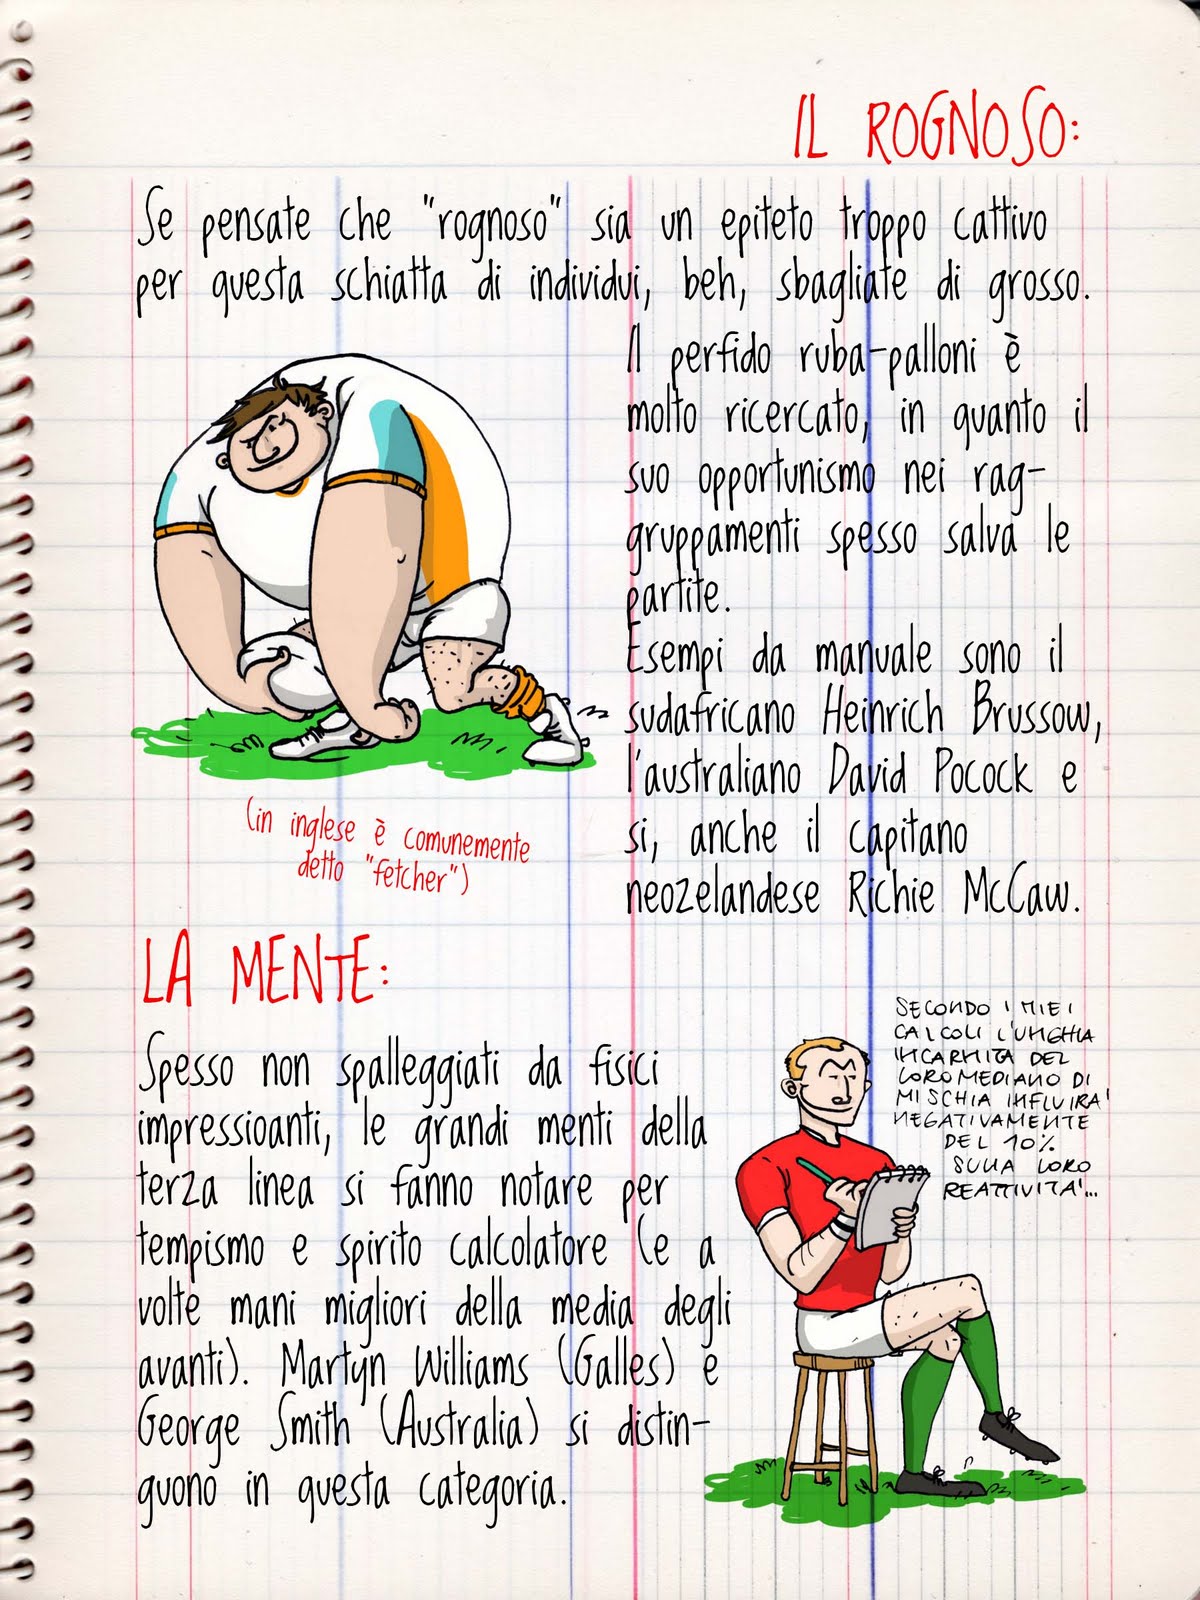 IL ROGNOSO:
Se pensate che "rognoso" sia un epiteto troppo cattivo
per questa schiatta di individui, beh, sbagliate di grosso.
Il perfido ruba-palloni è
molto ricercato, in quanto il
suo opportunismo nei rag-
gruppamenti spesso salva le
partite.
Esempi da manuale sono il
sudafricano Heinrich Brussow,
l'australiano David Pocock e
si, anche il capitano
neozelandese Richie McCaw.
(in inglese è comunemente
detto "fetcher")
LA MENTE:
Spesso non spalleggiati da fisici
impressioanti, le grandi menti della
terza linea si fanno notare per
tempismo e spirito calcolatore (e a
volte mani migliori della media degli
avanti). Martyn Williams (Galles) e
George Smith (Australia) si distin-
guono in questa categoria.
SECONDO I MIEI
CALCOLI L'UNGHIA
INCARNITA DEL
LORO MEDIANO DI
MISCHIA INFLUIRA'
NEGATIVAMENTE
DEL 10%
SULLA LORO
REATTIVITA'...